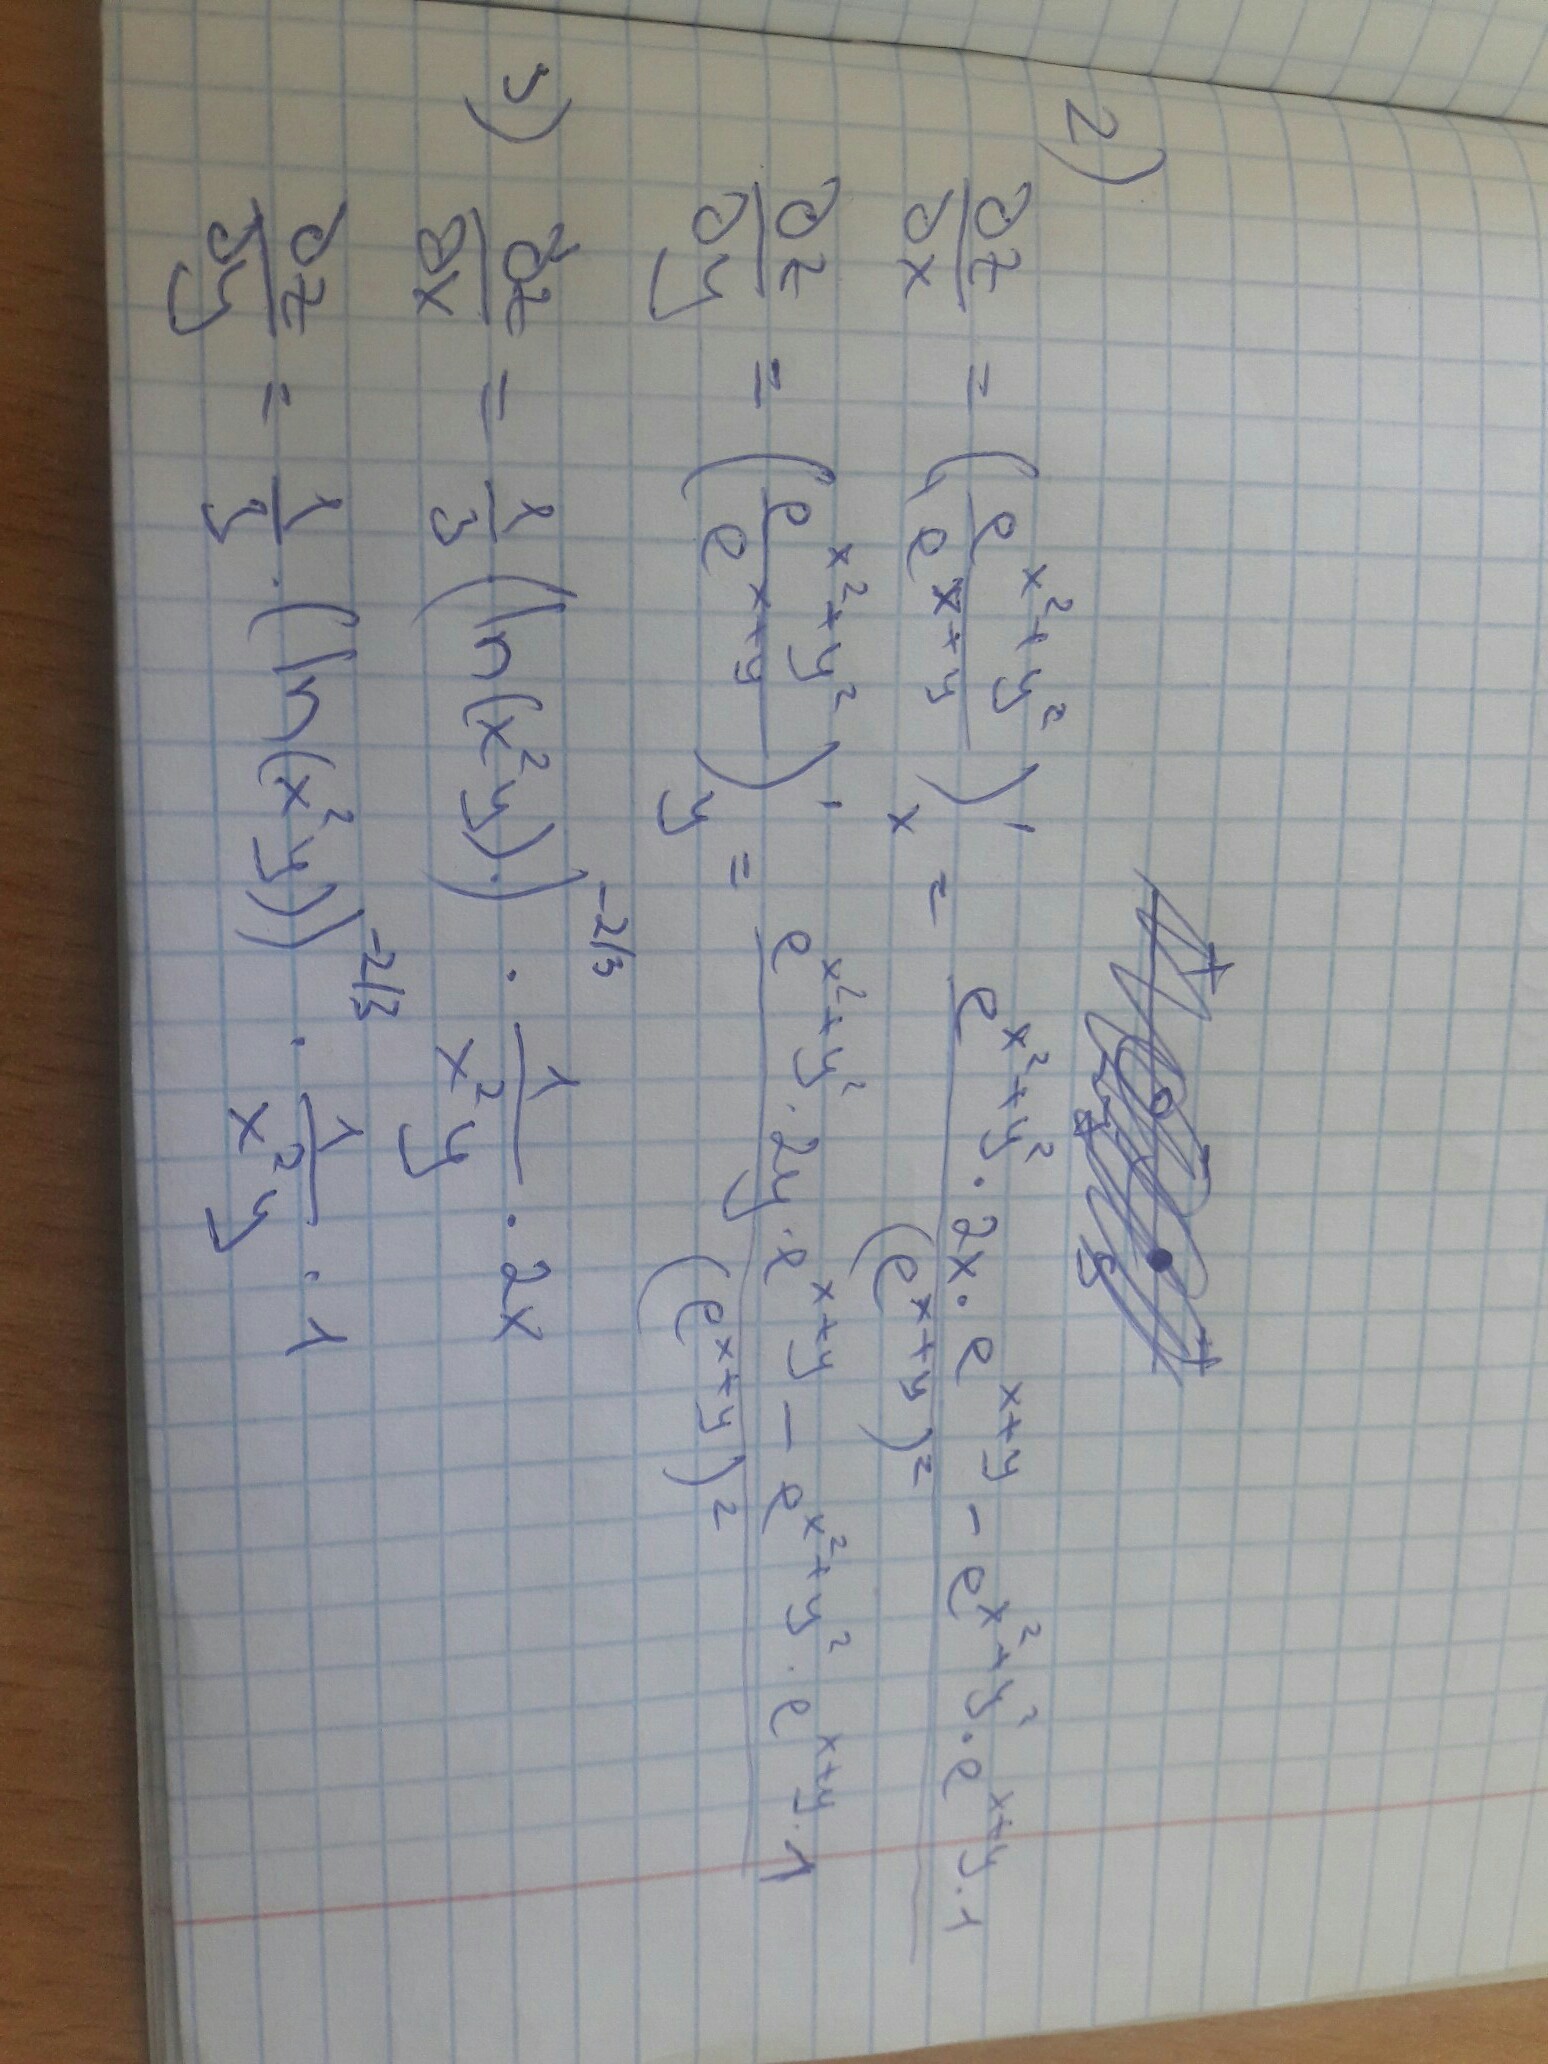 2)
∂z/∂x = (e^(x²+y²)/e^(x+y))'ₓ = (e^(x²+y²) · 2x · e^(x+y) − e^(x²+y²) · e^(x+y) · 1)/(e^(x+y))²
∂z/∂y = (e^(x²+y²)/e^(x+y))'_y = (e^(x²+y²) · 2y · e^(x+y) − e^(x²+y²) · e^(x+y) · 1)/(e^(x+y))²
3) ∂z/∂x = 1/3 (ln(x²y))^(-2/3) · 1/(x²y) · 2x
∂z/∂y = 1/3 · (ln(x²y))^(-2/3) · 1/(x²y) · 1